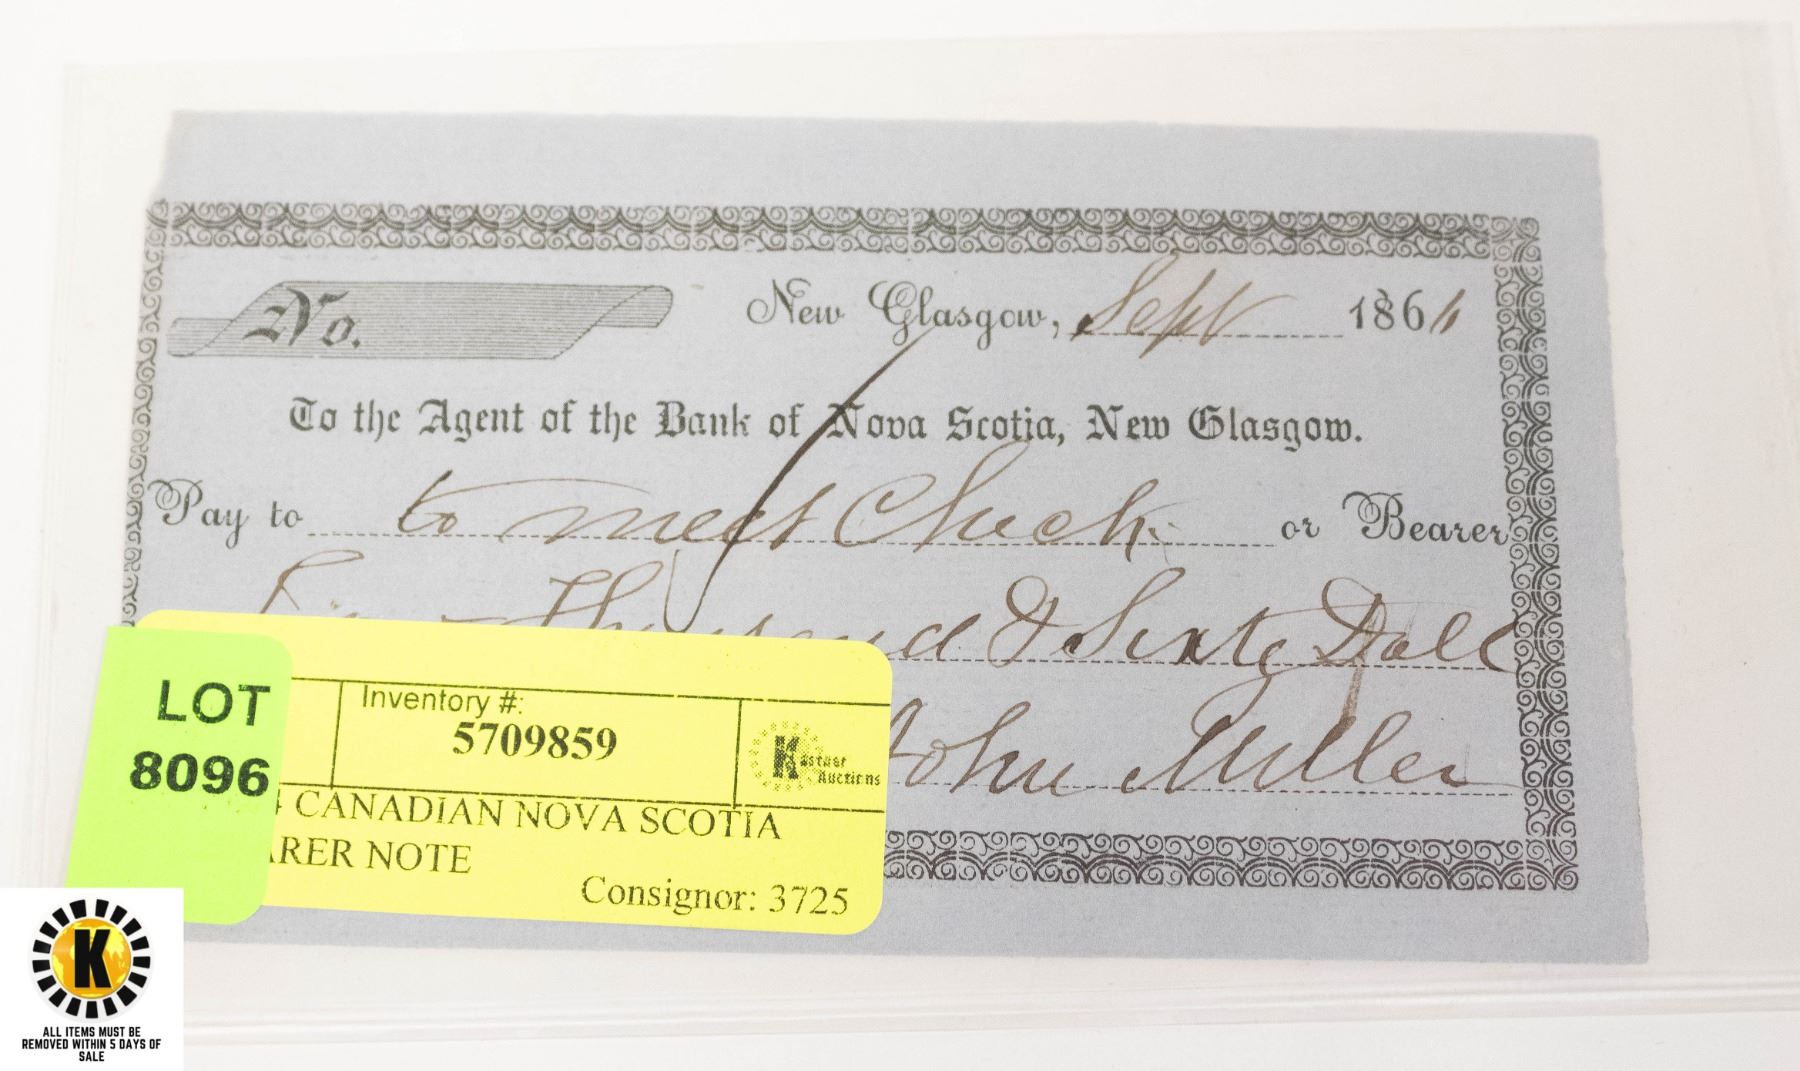 No.
New Glasgow, Sept 1864
To the Agent of the Bank of Nova Scotia, New Glasgow.
Pay to to meet Check or Bearer
Thousand & Sixty Doll
John Miller
LOT
8096
Inventory #:
5709859
Kastner Auctions
4 CANADIAN NOVA SCOTIA
ARER NOTE
Consignor: 3725
K
ALL ITEMS MUST BE
REMOVED WITHIN 5 DAYS OF
SALE